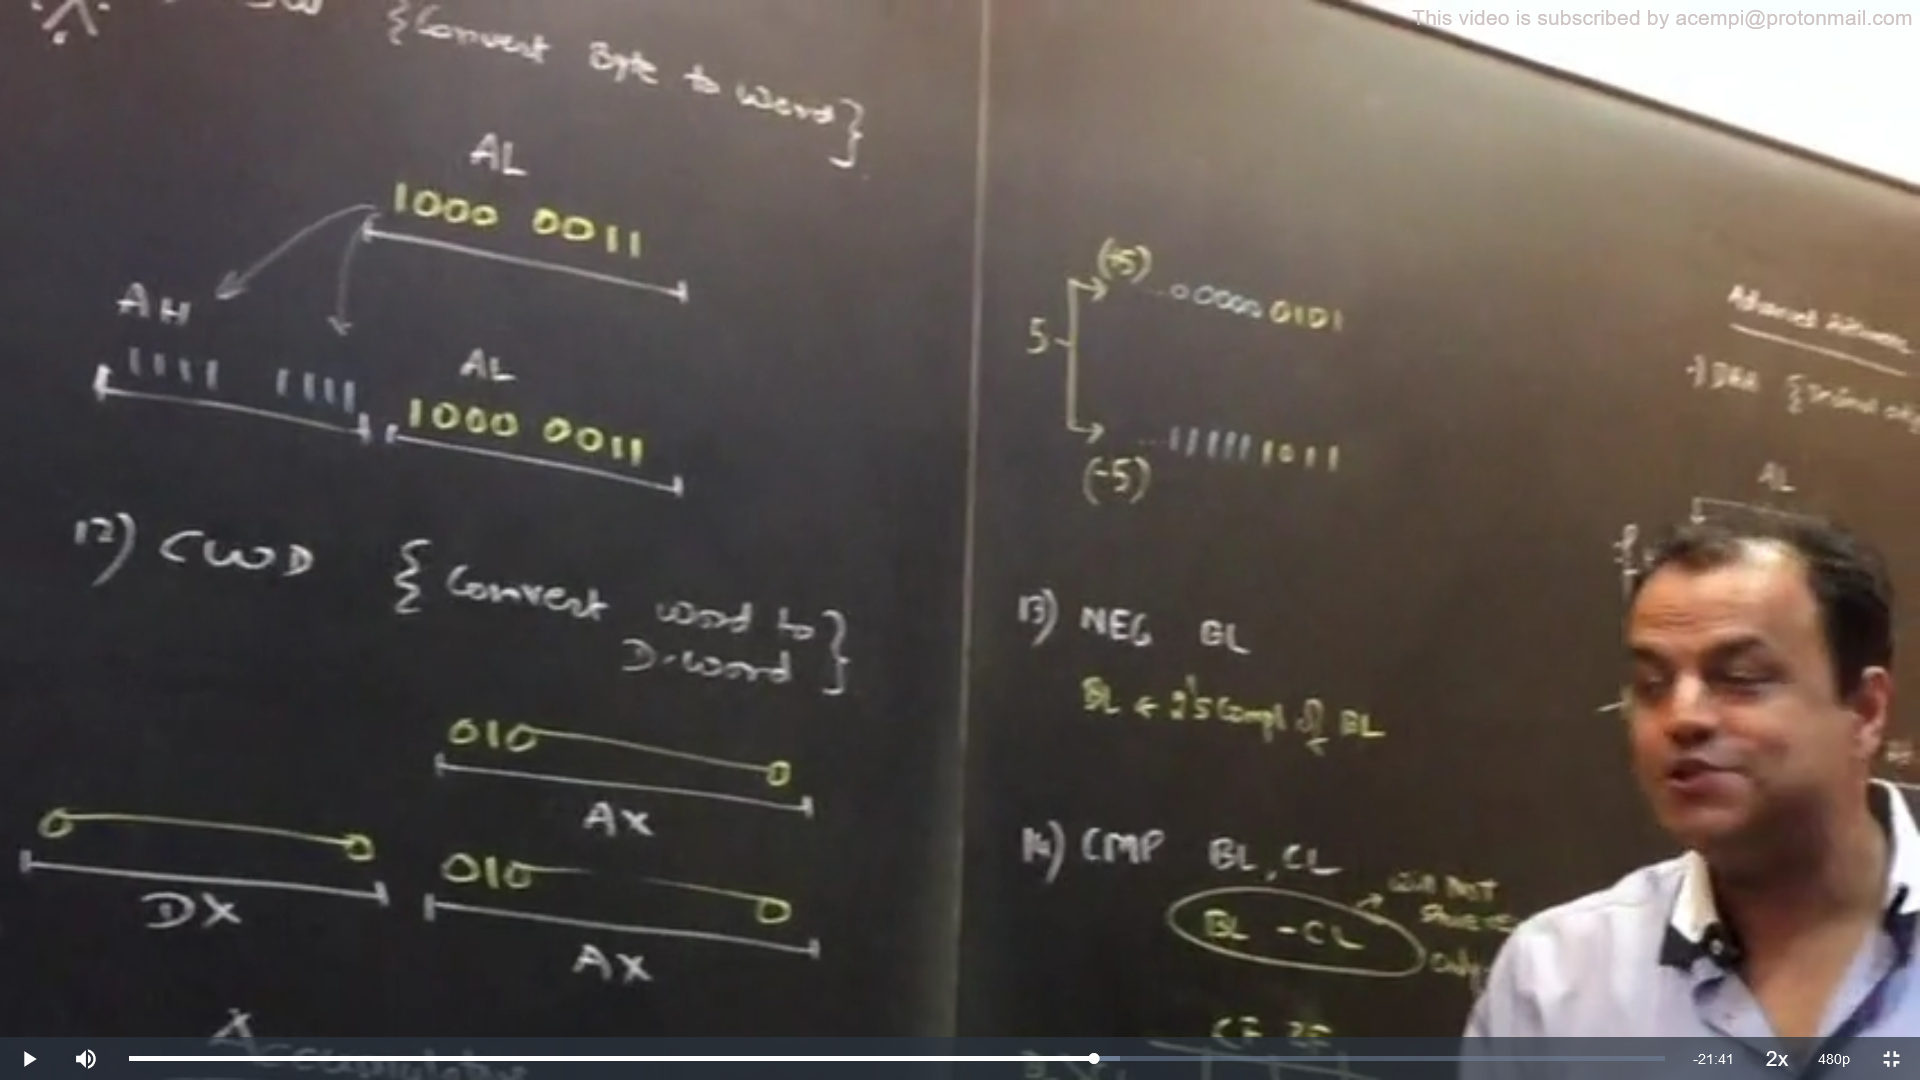 This video is subscribed by acempi@protonmail.com
{Convert Byte to Word}
AL
1000 0011
AH
AL
1111 1111 1000 0011
12) CWD {Convert word to
D-word}
010 0
AX
0 0 010 0
DX AX
5
(+5)
...00000 0101
...11111 1011
(-5)
13) NEG BL
BL ← 2's Compl of BL
14) CMP BL, CL
BL - CL
will not
only
CF ZF
Advanced
AL
-21:41
2x
480p